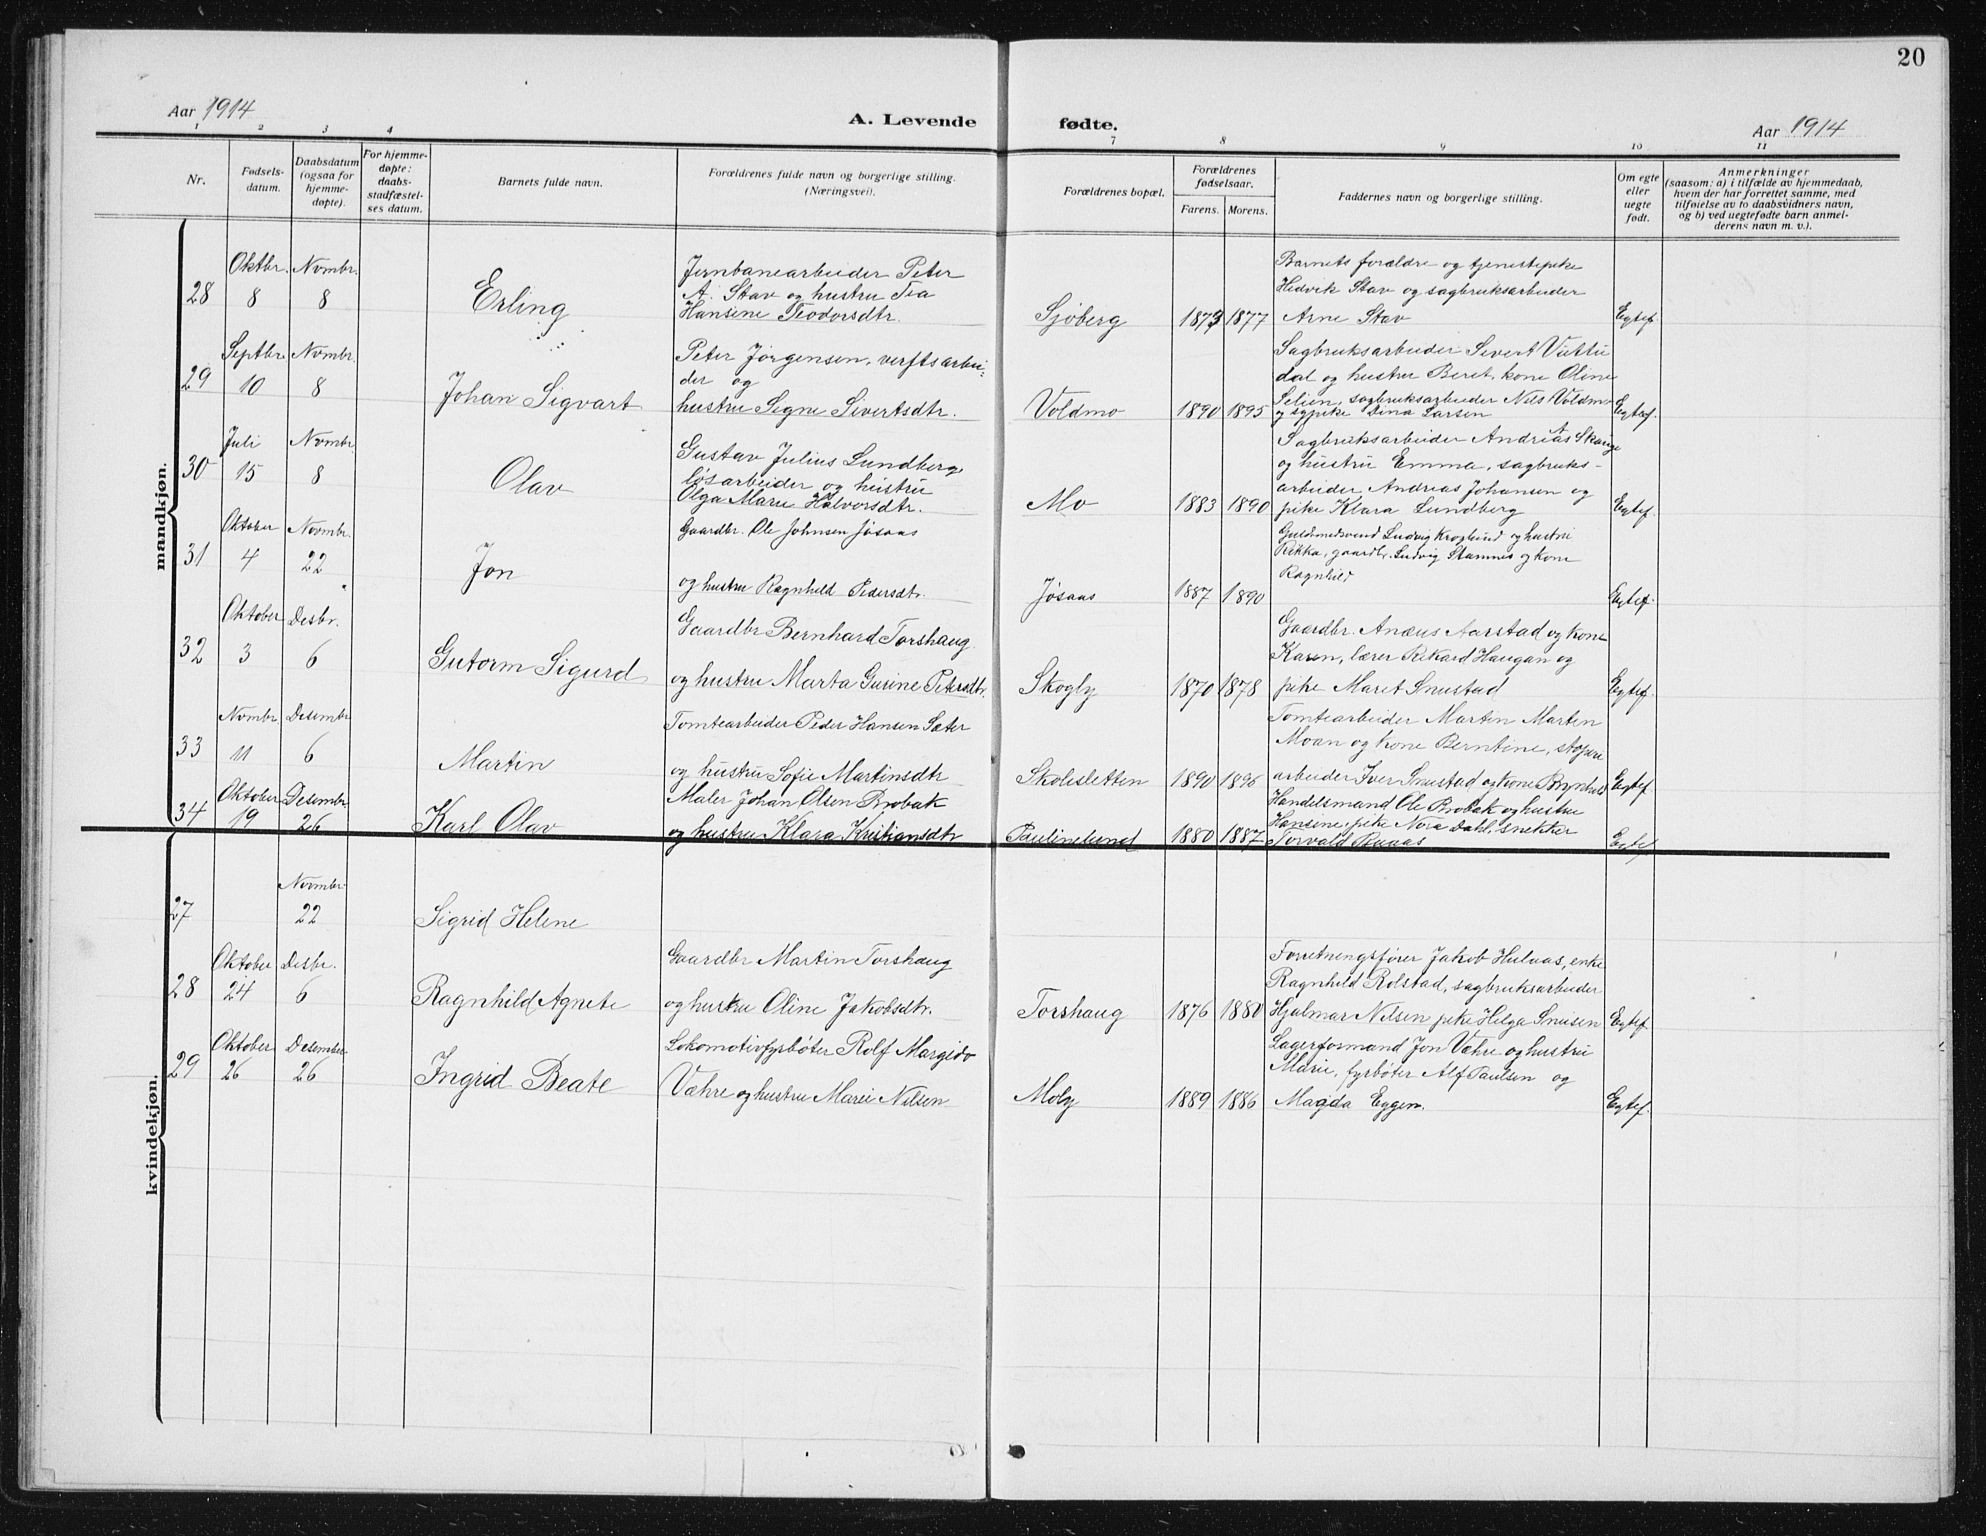 20
Aar 1914
A. Levende fødte.
Aar 1914
1 2 3 4 7 8 9 10 11
Nr.
Fødsels-
datum.
Daabsdatum
(ogsaa for
hjemme-
døpte).
For hjemme-
døpte:
daabs-
stadfæstel-
ses datum.
Barnets fulde navn.
Forældrenes fulde navn og borgerlige stilling.
(Næringsvei).
Forældrenes bopæl.
Forældrenes
fødselsaar.
Farens. Morens.
Faddernes navn og borgerlige stilling.
Om egte
eller
uegte
født.
Anmerkninger
(saasom: a) i tilfælde av hjemmedaab,
hvem der har forrettet samme, med
tilføielse av to daabsvidners navn,
og b) ved uegtefødte barn anmel-
derens navn m. v.).
mandkjøn.
28
Oktbr.
8
Novmbr.
8
Erling
Jernbanearbeider Peter
A. Stav og hustru Tea
Hansine Teodorsdtr.
Sjøberg
1873 1877
Barnets forældre og tjenestepike
Hedvik Stav og sagbruksarbeider
Arne Stav
Egtef.
29
Septbr.
10
Novmbr.
8
Johan Sigvart
Peter Jørgensen, verftsarbei-
der og
hustru Signe Sivertsdtr.
Voldmo
1890 1895
Sagbruksarbeider Sivert Vuttu
dal og hustru Beret, kone Oline
Selien, sagbruksarbeider Nils Voldmo
og sypike Dina Larsen
Egtef.
30
Juli
15
Novmbr.
8
Olav
Gustav Julius Lundberg
løsarbeider og hustru
Olga Marie Halvorsdtr.
Mo
1883 1890
Sagbruksarbeider Andreas A Skauge
og hustru Emma, sagbruks-
arbeider Andreas Johansen og
pike Klara Lundberg
Egtef.
31
Oktober
4
Novmbr.
22
Jon
Gaardbr. Ole Johnsen Jøsaas
og hustru Ragnhild Pedersdtr.
Jøsaas
1887 1890
Guldsmedsvend Ludvig Kroglund og hustru
Rikka, gaardbr. Ludvig Stamnes og kone
Ragnhild
Egtef.
32
Oktober
3
Desbr.
6
Gutorm Sigurd
Gaardbr Bernhard Torshaug
og hustru Marta Gurine Petersdtr.
Skogly
1870 1878
Gaardbr. Anæus Aarstad og kone
Karen, lærer Rikard Haugan og
pike Maret Snustad
Egtef.
33
Novmbr.
11
Desembr
6
Martin
Tomtearbeider Peder Hansen Sæter
og hustru Sofie Martinsdtr
Skolesletten
1890 1896
Tomtearbeider Martin Marten
Moan og kone Berntine, støperi
arbeider Iver Snustad og kone Brynhild
Egtef.
34
Oktober
19
Desembr
26
Karl Olav
Maler Johan Olsen Brobak
og hustru Klara Kristiansdtr
Paulinelund
1880 1887
Handelsmand Ole Brobak og hustru
Hansine, pike Nora Dahl, snekker
Torvald Ruaas
Egtef.
kvindekjøn.
27
Novmbr.
22
Sigrid Helene
28
Oktober
24
Desbr.
6
Ragnhild Agnete
Gaardbr Martin Torshaug
og hustru Oline Jakobsdtr.
Torshaug
1876 1880
Forretningsfører Jakob Hulaas, enke
Ragnhild Rolstad, sagbruksarbeider
Hjalmar Nilsen pike Helga Snusen
Egtef.
29
Oktober
26
Desember
26
Ingrid Beate
Lokomotivfyrbøter Rolf Margido
Væhre og hustru Marie Nilsen
Moly
1889 1886
Lagerformand Jon Væhre og hustru
Marie, fyrbøter Alf Paulsen og
Magda Eggen.
Egtef.